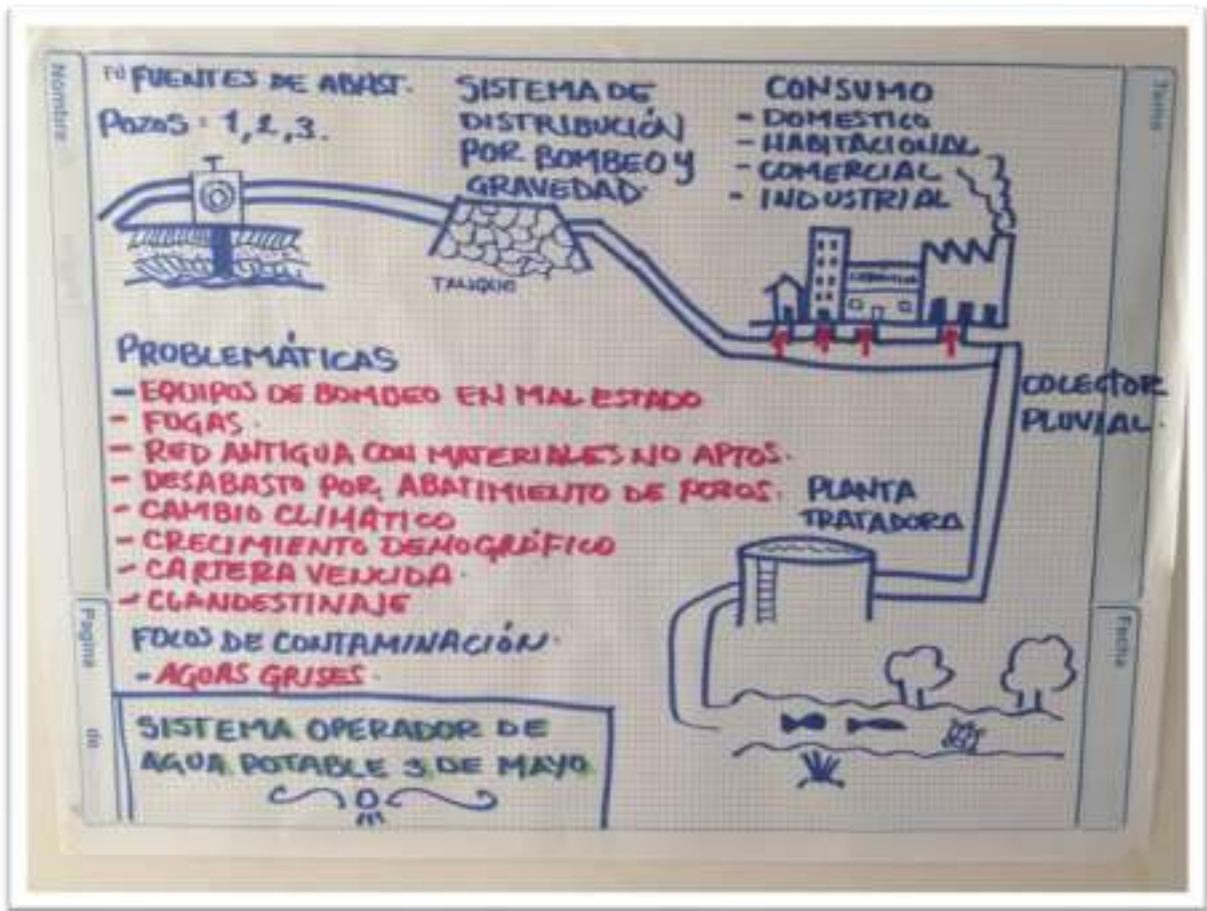 FUENTES DE ABAST.
POZOS: 1, 2, 3.
SISTEMA DE
DISTRIBUCIÓN
POR BOMBEO Y
GRAVEDAD.
TANQUE
CONSUMO
- DOMESTICO
- HABITACIONAL
- COMERCIAL
- INDUSTRIAL
COLECTOR
PLUVIAL.
PLANTA
TRATADORA
PROBLEMÁTICAS
- EQUIPOS DE BOMBEO EN MAL ESTADO
- FUGAS.
- RED ANTIGUA CON MATERIALES NO APTOS.
- DESABASTO POR ABATIMIENTO DE POZOS.
- CAMBIO CLIMÁTICO
- CRECIMIENTO DEMOGRÁFICO
- CARTERA VENCIDA.
- CLANDESTINAJE
FOCOS DE CONTAMINACIÓN.
- AGUAS GRISES.
SISTEMA OPERADOR DE
AGUA POTABLE 3 DE MAYO
Nombre
Pagina
de
Tema
Fecha